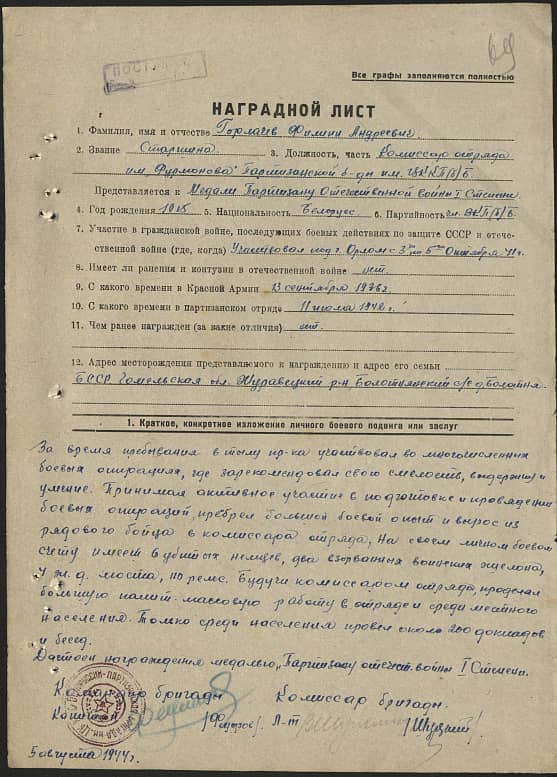 69
ПОСТУ
Все графы заполняются полностью
НАГРАДНОЙ ЛИСТ
1. Фамилия, имя и отчество Горлачев Филипп Андреевич.
2. Звание Старшина 3. Должность, часть Комиссар отряда
им. Фурмонова Партизанской б-ды им. ЦК КП/б/Б
Представляется к Медали Партизану Отечественной войны I Степени
4. Год рождения 1915 5. Национальность Белорус 6. Партийность КП/б/Б
7. Участие в гражданской войне, последующих боевых действиях по защите СССР и отече-
ственной войне (где, когда) Участвовал под г. Орлом с 3го по 5ое Октября 41 г.
8. Имеет ли ранения и контузии в отечественной войне нет.
9. С какого времени в Красной Армии 13 сентября 1936 г
10. С какого времени в партизанском отряде 11 июля 1942 г.
11. Чем ранее награжден (за какие отличия) нет.
12. Адрес месторождения представляемого к награждению и адрес его семьи
БССР Гомельская обл. Журавецкий р-н, Болотнянский с/с д. Болотня.
1. Краткое, конкретное изложение личного боевого подвига или заслуг
За время пребывания в тылу пр-ка участвовал во многочисленных
боевых операциях, где зарекомендовал свою смелость, выдержку и
умение. Принимал активное участие в подготовке и проведении
боевых операций, преобрел большой боевой опыт и вырос из
рядового бойца в комиссара отряда, На своем личном боевом
счету имеет 6 убитых немцев, два взорванных воинских эшелона,
ж.д. моста, 110 рельс. Будучи комиссаром отряда, проделал
большую полит-массовую работу в отряде и среди местного
населения. Только среди населения провел около 200 докладов
и бесед.
Достоен награждения медалью „Партизану отечеств. войны I Степени.
Командир бригады Комиссар бригады.
Капитан Л-т
5 августа 1944 г.